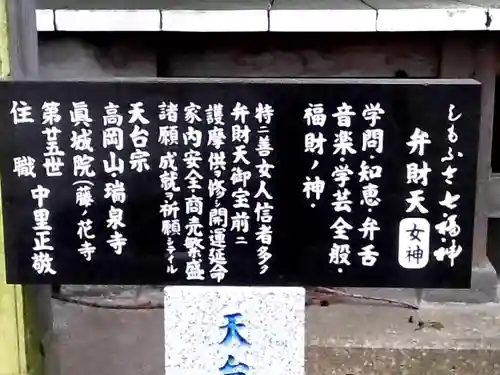 しもふさ七福神
弁財天
女神
学問・知恵・弁舌
音楽・学芸全般・
福財ノ神・
特ニ善女人信者多ク
弁財天御宝前ニ
護摩供ヲ修シ開運延命
家内安全・商売繁盛
諸願成就ヲ祈願シテイル
天台宗
高岡山・瑞泉寺
眞城院(藤ノ花寺
第廿五世
住職 中里正敬
天